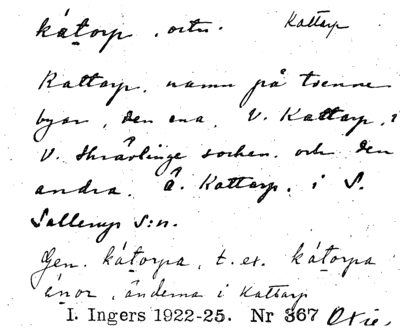 kátorp, ortn. Kattarp
Kattarp, namn på tvenne
byar, den ena, V. Kattarp, i
V. Skrävlinge socken, och den
andra, Â. Kattarp, i S.
Sallerup s:n.
Gen. kátorpa, t. ex. kátorpa
ä̀nor, änderna i Kattarp
I. Ingers 1922-25. Nr 367 Oxie.